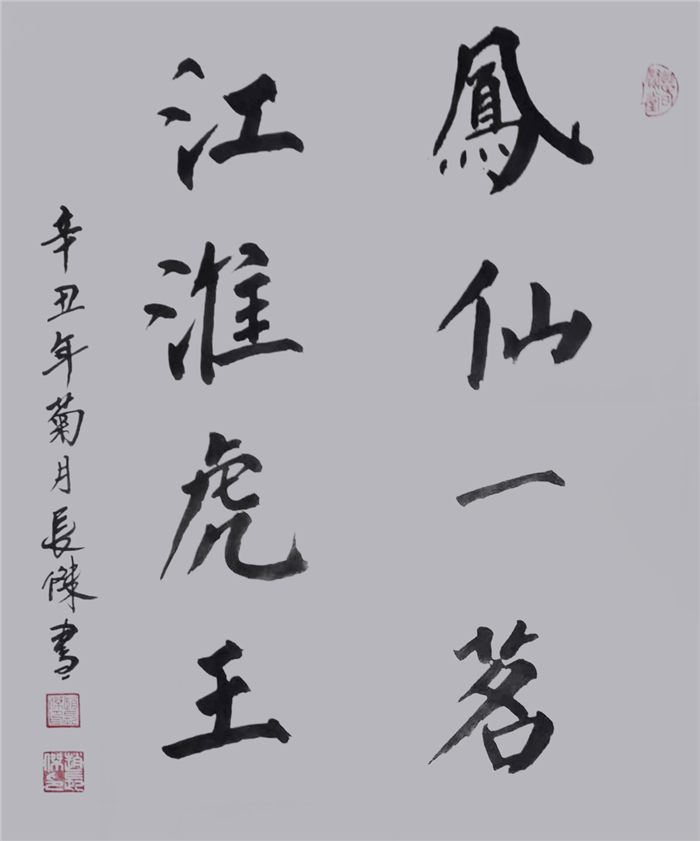 鳳仙一茗
江淮虎王
辛丑年菊月長傑書